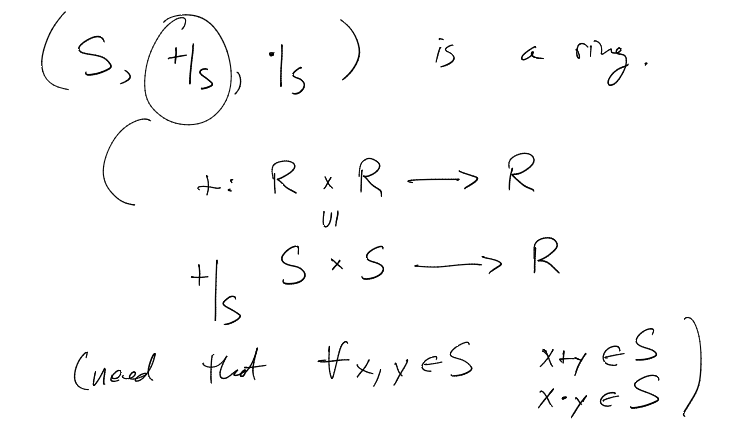 (S, +|S, ·|S) is a ring.
+: R × R ⟶ R
∪|
+|S S × S ⟶ R
(need that ∀x, y ∈ S x+y ∈ S
x·y ∈ S)